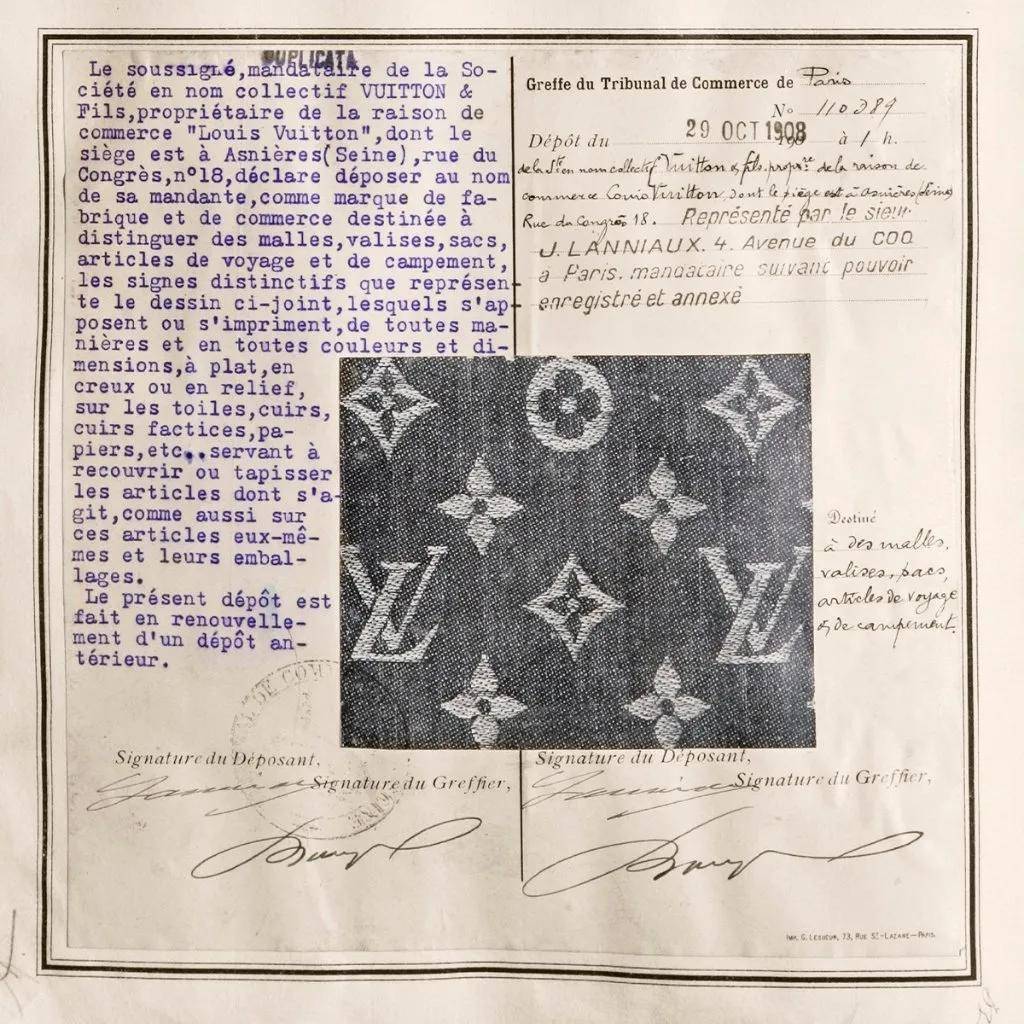 DUPLICATA
Le soussigné,mandataire de la So-
ciété en nom collectif VUITTON &
Fils,propriétaire de la raison de
commerce "Louis Vuitton",dont le
siège est à Asnières(Seine),rue du
Congrès,n°18,déclare déposer au nom
de sa mandante,comme marque de fa-
brique et de commerce destinée à
distinguer des malles,valises,sacs,
articles de voyage et de campement,
les signes distinctifs que représen-
te le dessin ci-joint,lesquels s'ap-
posent ou s'impriment,de toutes ma-
nières et en toutes couleurs et di-
mensions,à plat,en
creux ou en relief,
sur les toiles,cuirs,
cuirs factices,pa-
piers,etc..servant à
recouvrir ou tapisser
les articles dont s'a-
git,comme aussi sur
ces articles eux-mê-
mes et leurs embal-
lages.
Le présent dépôt est
fait en renouvelle-
ment d'un dépôt an-
térieur.
Signature du Déposant,
Signature du Greffier,
Greffe du Tribunal de Commerce de Paris
N° 110389
Dépôt du 29 OCT 1908 à 1 h.
de la Sté en nom collectif Vuitton & fils, propre. de la raison de
commerce Louis Vuitton, dont le siège est à Asnières (Seine)
Rue du Congrès 18. Représenté par le sieur
J. LANNIAUX. 4. Avenue du COQ
à Paris. mandataire suivant pouvoir
enregistré et annexé
LV LV
Destiné
à des malles,
valises, sacs,
articles de voyage
& de campement.
Signature du Déposant,
Signature du Greffier,
IMP. G. LESUEUR, 73, RUE ST-LAZARE—PARIS.